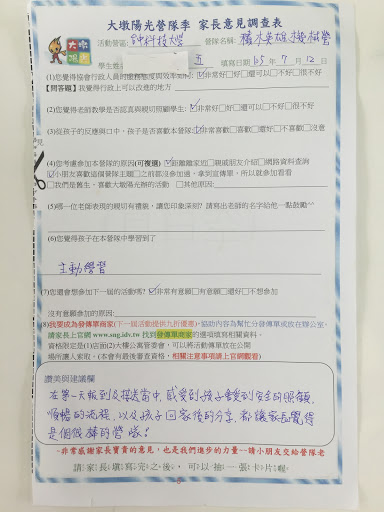 大墩陽光營隊季 家長意見調查表
活動營區: 中科技大學 營隊名稱: 積木英雄機械營
學生姓 五 填寫日期 105 年 7 月 12 日
(1)您覺得協會行政人員的服務態度與效率如何: ☑非常好□好□還可以□不好□很不好
【問答題】我覺得行政上可以改進的地方
(2)您覺得老師教學是否認真與親切照顧學生: ☑非常好□好□還可以□不好□很不好
(3)從孩子的反應與口中，孩子是否喜歡本營隊: ☑非常喜歡□喜歡□還好□不喜歡□沒意
(4)您考慮參加本營隊的原因(可複選) ☑距離離家近□親戚朋友介紹□網路資料查詢
☑小朋友喜歡這個營隊主題□之前都沒參加過，拿到宣傳單，所以參加看看
□我們是舊生，喜歡大墩陽光辦的活動 □其他原因:
(5)哪一位老師表現的親切有禮貌，讓您印象深刻? 請寫出老師的名字給他一點鼓勵^^
(6)您覺得孩子在本營隊中學習到了
主動學習
(7)您還會想參加下一屆的活動嗎? ☑非常有意願□有意願□還好□不想參加
沒有意願參加的原因:
(8)我要成為發傳單商家(下一屆活動提供九折優惠)，協助內容為幫忙分發傳單或放在辦公室，
請家長上官網 www.sng.idv.tw 找到發傳單商家的選項填寫相關資料。
資格限定是(1)店面(2)大樓公寓管委會，可以將活動傳單放在公開
場所讓人索取。(本會有最後審查資格，相關注意事項請上官網觀看)
讚美與建議欄
在第一天報到及接送當中，感受到孩子會受到安全的照顧，
順暢的流程，以及孩子回家後的分享，都讓家長覺得
是個很棒的營隊!
~非常感謝家長寶貴的意見，也是我們進步的力量~~請小朋友交給營隊老
請家長填寫完之後，可以抽一張卡片喔